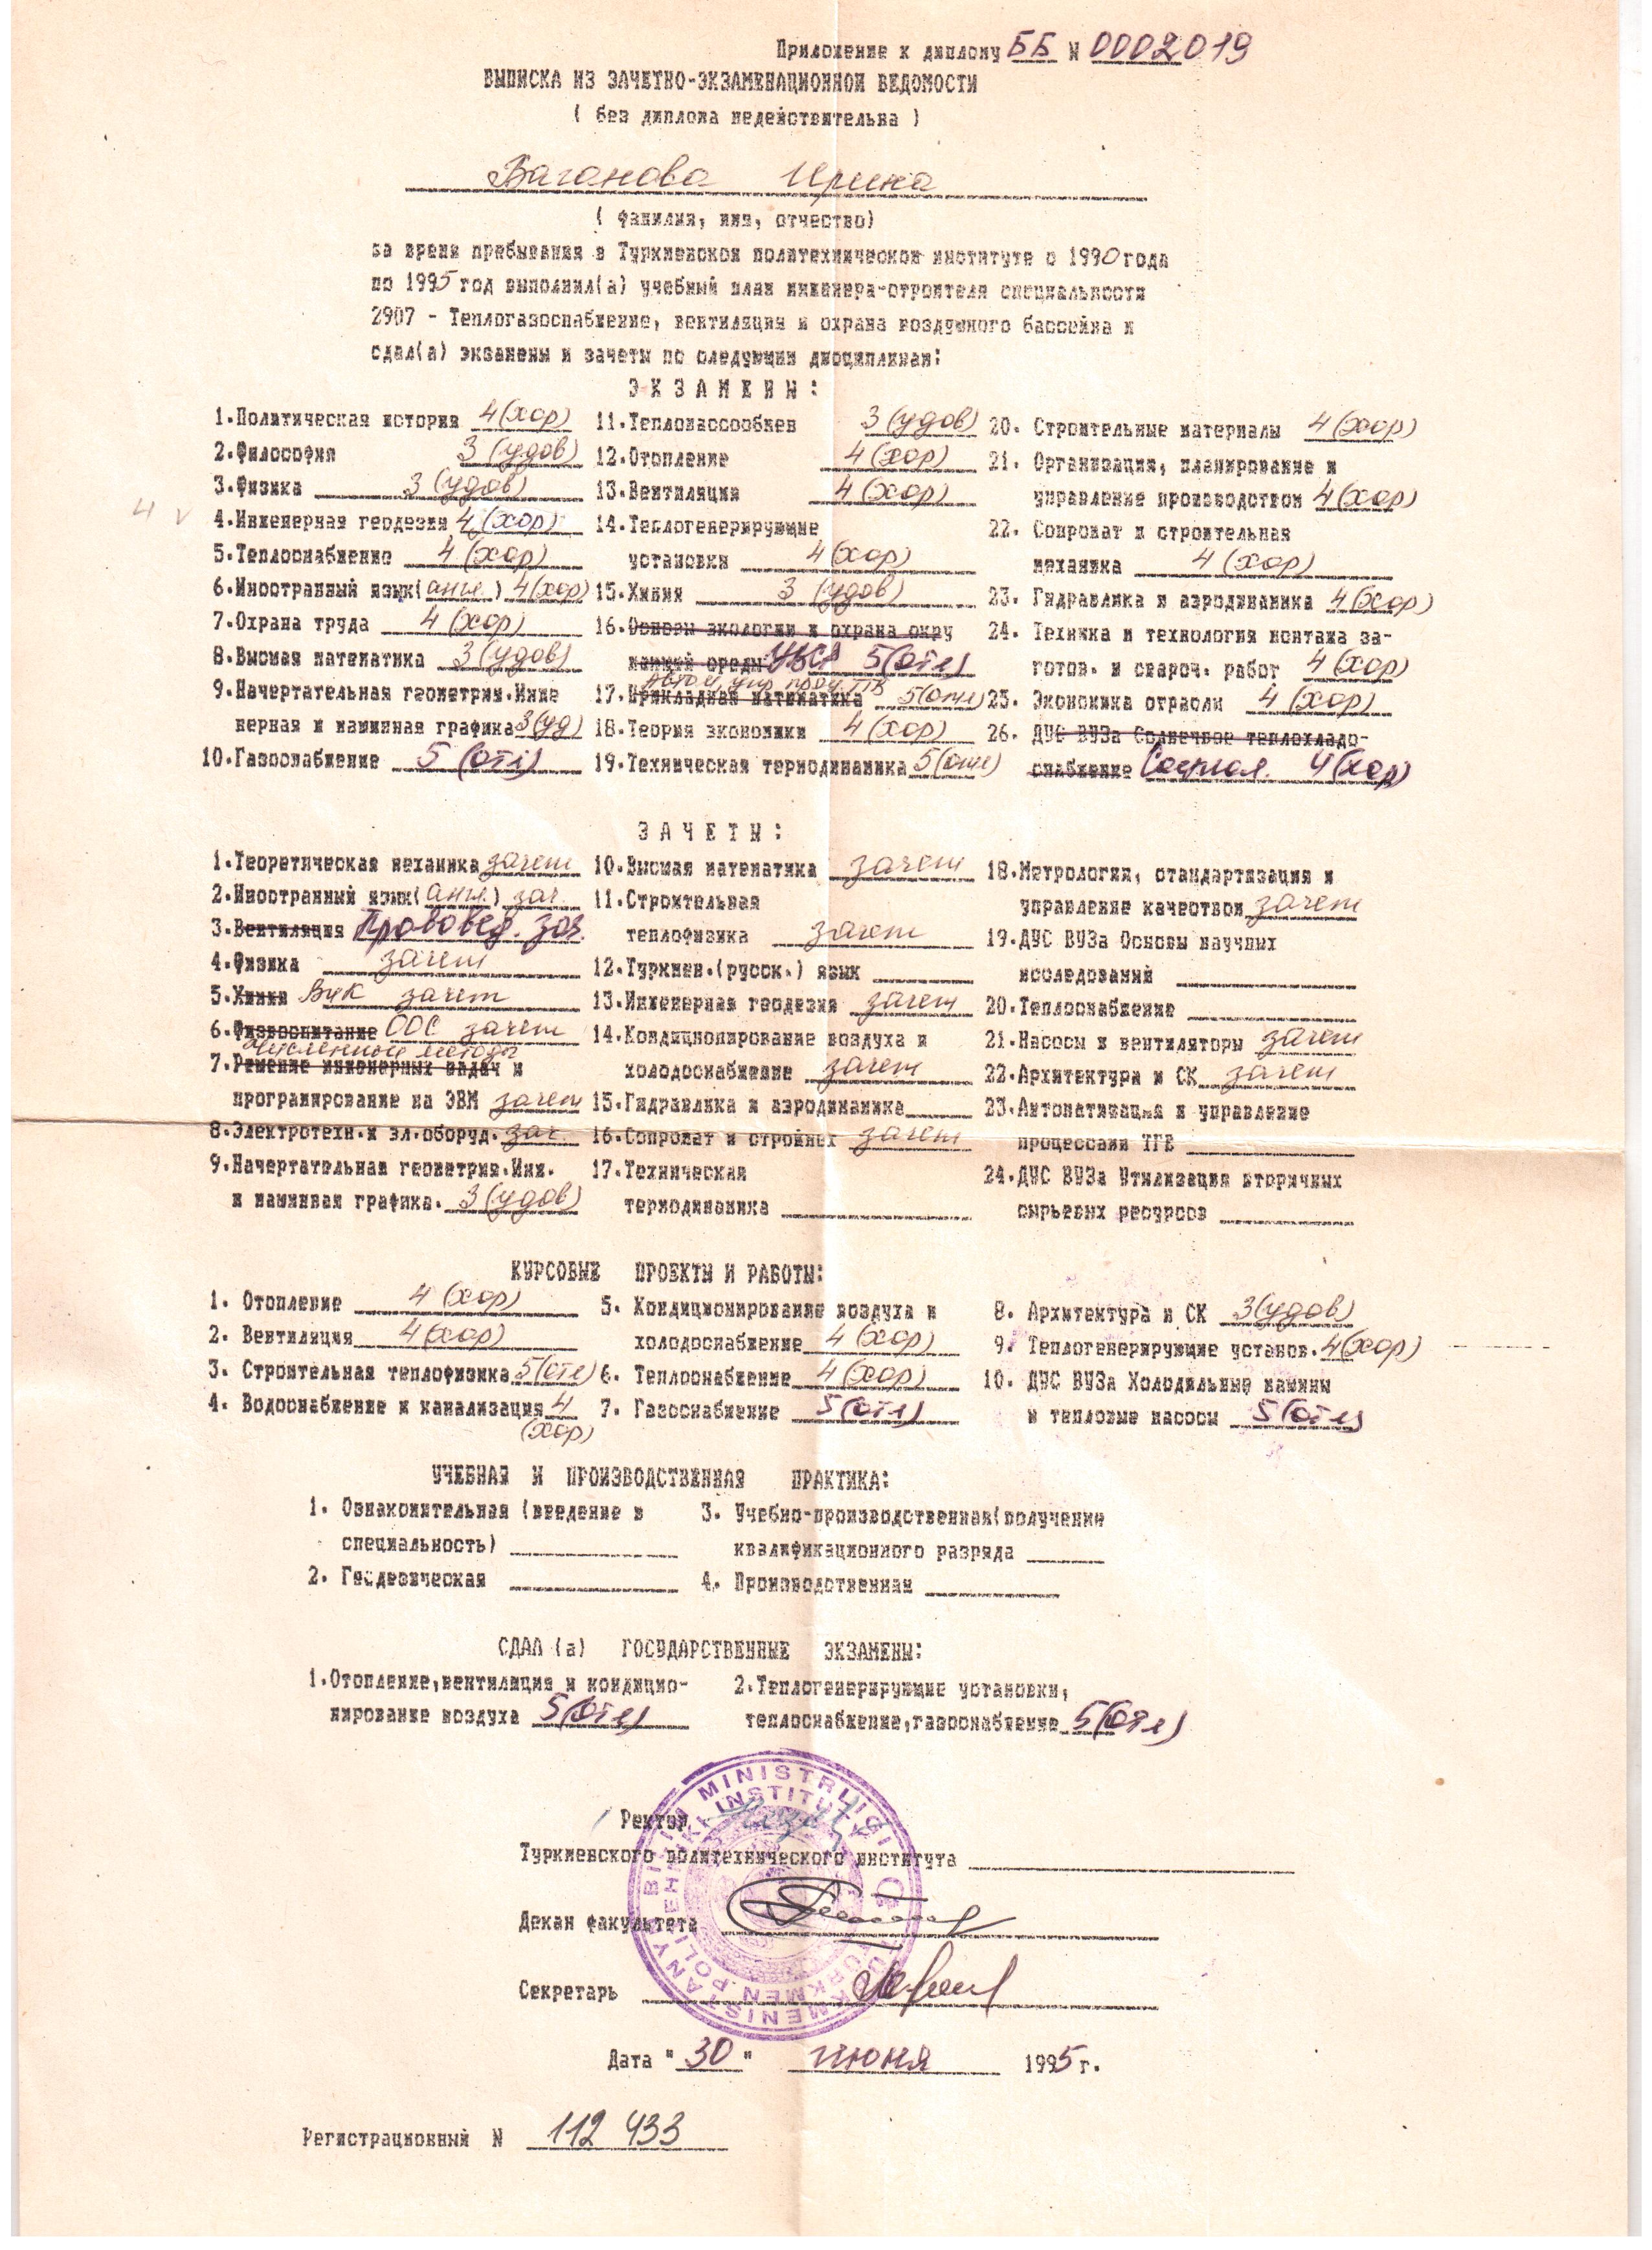 Приложение к диплому ББ N 0002019
ВЫПИСКА ИЗ ЗАЧЕТНО-ЭКЗАМЕНАЦИОННОЙ ВЕДОМОСТИ
( без диплома недействительна )
Ваганова Ирина
( фамилия, имя, отчество)
за время пребывания в Туркменском политехническом институте с 1990 года
по 1995 год выполнил(а) учебный план инженера-строителя специальности
2907 - Теплогазоснабжение, вентиляция и охрана воздушного бассейна и
сдал(а) экзамены и зачеты по следующим дисциплинам:
Э К З А М Е Н Ы :
1.Политическая история 4(хор)
2.Философия 3 (удов)
3.Физика 3 (удов)
4.Инженерная геодезия 4(хор)
5.Теплоснабжение 4(хор)
6.Иностранный язык(англ.) 4(хор)
7.Охрана труда 4(хор)
8.Высшая математика 3(удов)
9.Начертательная геометрия.Инже
нерная и машинная графика 3(уд)
10.Газоснабжение 5 (отл)
11.Тепломассообмен 3(удов)
12.Отопление 4(хор)
13.Вентиляция 4(хор)
14.Теплогенерирующие
установки 4(хор)
15.Химия 3 (удов)
16.Основы экологии и охрана окру
жающей среды 5(отл)
Автом. упр. проц. ТГВ
17.Прикладная математика 5(отл)
18.Теория экономики 4(хор)
19.Техническая термодинамика 5(отл)
20. Строительные материалы 4(хор)
21. Организация, планирование и
управление производством 4(хор)
22. Сопромат и строительная
механика 4(хор)
23. Гидравлика и аэродинамика 4(хор)
24. Техника и технология монтажа за-
готов. и свароч. работ 4(хор)
25. Экономика отрасли 4(хор)
26. ДУС ВУЗа Солнечное теплохладо-
снабжение Социол. 4(хор)
З А Ч Е Т Ы :
1.Теоретическая механика зачет
2.Иностранный язык(англ.) зач.
3.Вентиляция Прововед. зач.
4.Физика зачет
5.Химия ВиК зачет
6.Физвоспитание ООС зачет
Численные методы
7.Решение инженерных задач и
програмирование на ЭВМ зачет
8.Электротехн.и эл.оборуд. зач.
9.Начертательная геометрия.Инж.
и машинная графика. 3(удов)
10.Высшая математика зачет
11.Строительная
теплофизика зачет
12.Туркмен.(русск.) язык
13.Инженерная геодезия зачет
14.Кондиционирование воздуха и
холодоснабжение зачет
15.Гидравлика и аэродинамика
16.Сопромат и строймех зачет
17.Техническая
термодинамика
18.Метрология, стандартизация и
управление качеством зачет
19.ДУС ВУЗа Основы научных
исследований
20.Теплоснабжение
21.Насосы и вентиляторы зачет
22.Архитектура и СК зачет
23.Автоматизация и управление
процессами ТГВ
24.ДУС ВУЗа Утилизация вторичных
сырьевых ресурсов
КУРСОВЫЕ ПРОЕКТЫ И РАБОТЫ:
1. Отопление 4(хор)
2. Вентиляция 4(хор)
3. Строительная теплофизика 5(отл)
4. Водоснабжение и канализация 4
(хор)
5. Кондиционирование воздуха и
холодоснабжение 4(хор)
6. Теплоснабжение 4(хор)
7. Газоснабжение 5(отл)
8. Архитектура и СК 3(удов)
9. Теплогенерирующие установ. 4(хор)
10. ДУС ВУЗа Холодильные машины
и тепловые насосы 5(отл)
УЧЕБНАЯ И ПРОИЗВОДСТВЕННАЯ ПРАКТИКА:
1. Ознакомительная (введение в
специальность)
2. Геодезическая
3. Учебно-производственная(получение
квалификационного разряда
4. Производственная
СДАЛ (а) ГОСУДАРСТВЕННЫЕ ЭКЗАМЕНЫ:
1.Отопление,вентиляция и кондицио-
нирование воздуха 5(отл)
2.Теплогенерирующие установки,
теплоснабжение,газоснабжение 5(отл)
Ректор
Туркменского политехнического института
Декан факультета
Секретарь
TÜRKMENISTANYŇ BILIM MINISTRLIGI
TÜRKMEN POLITEHNIKI INSTITUTY
Дата "30" июня 1995 г.
Регистрационный N 112 433